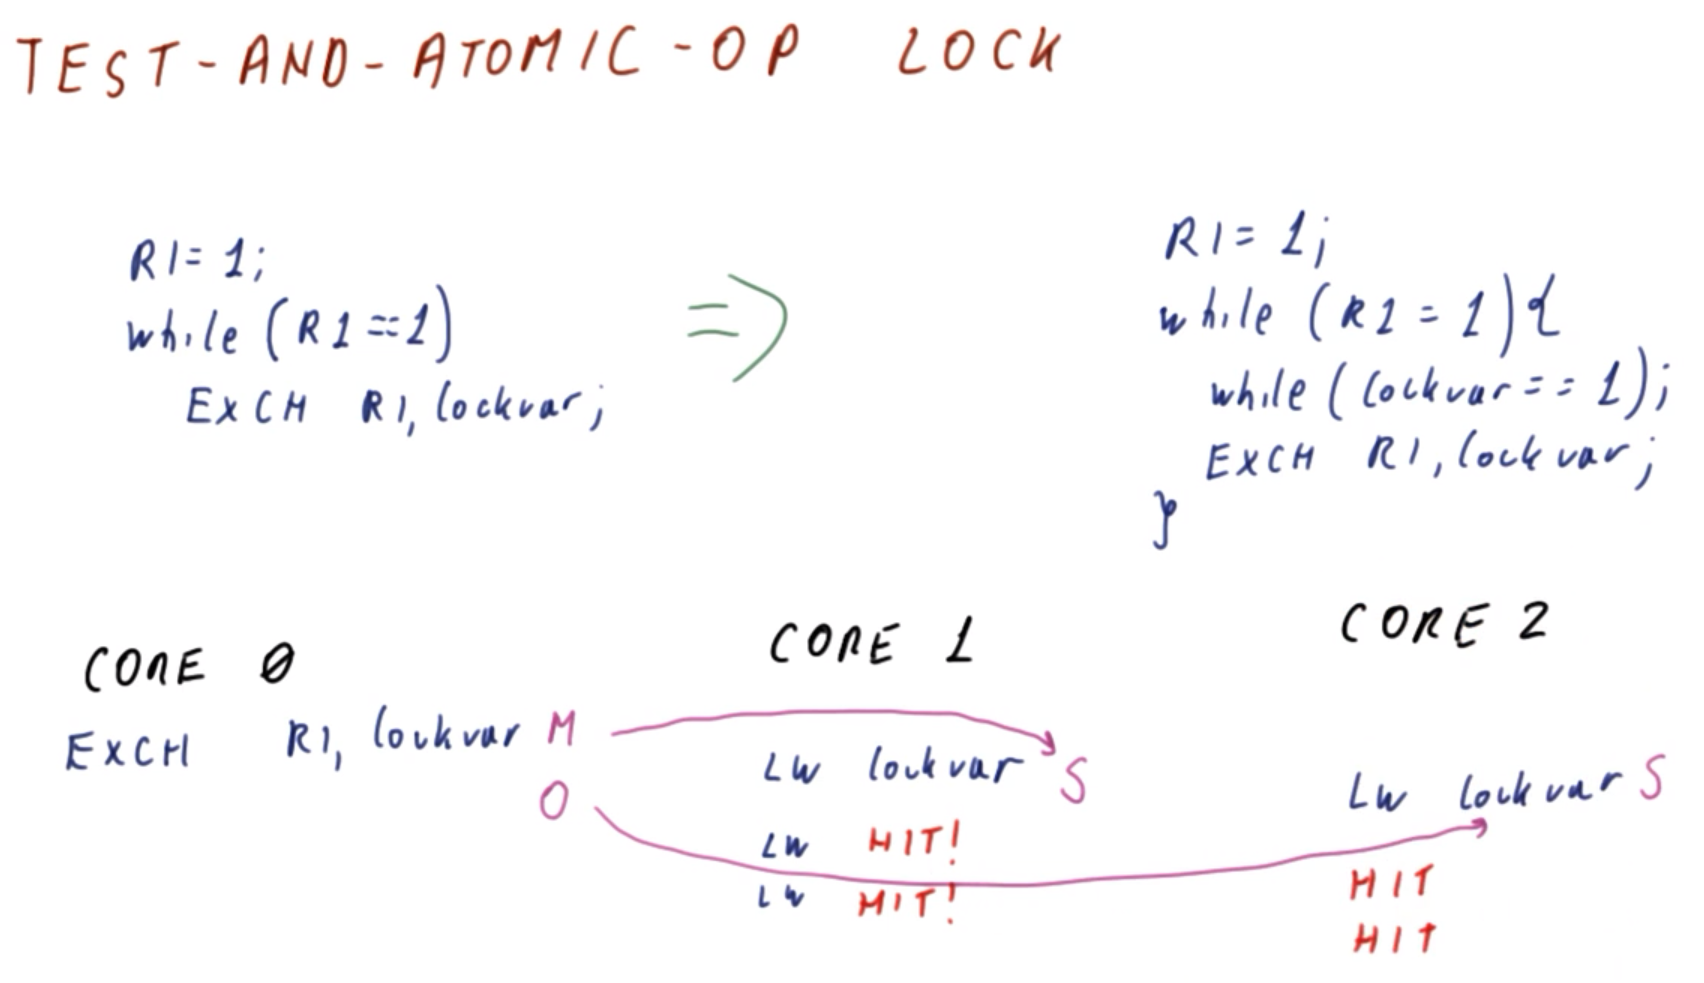 TEST-AND-ATOMIC-OP LOCK
R1= 1;
while (R1==1)
EXCH R1, lockvar;
=>
R1= 1;
while (R1 = 1){
while (lockvar == 1);
EXCH R1, lockvar;
}
CORE 0
EXCH R1, lockvar M
O
CORE 1
LW lockvar S
LW HIT!
LW HIT!
CORE 2
LW lockvar S
HIT
HIT